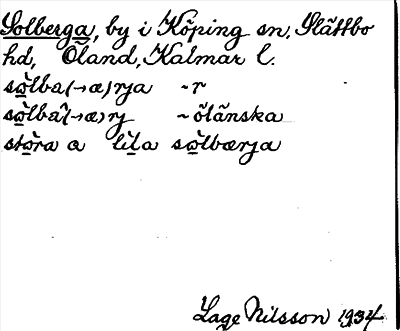 Solberga, by i Köping sn, Slättbo
hd, Öland, Kalmar l.
sòlba(→æ)rja ~r
sòlba(→æ)rj ~ölänska
stòra o lìla sòlbærja
Lage Nilsson 1934